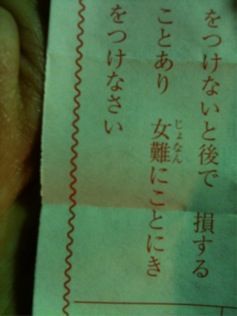 をつけないと後で 損する
ことあり 女難にことにき
をつけなさい